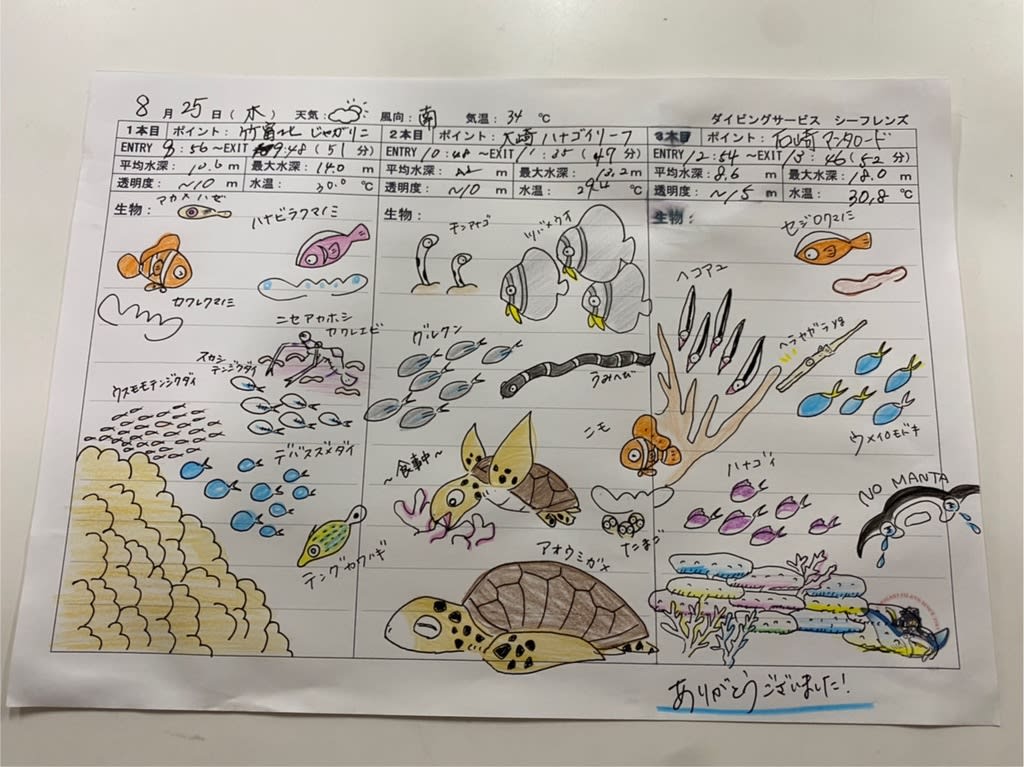 8月25日(木) 天気: 風向:南 気温:34℃ ダイビングサービス シーフレンズ
1本目 ポイント:竹富北じゃがリニ
ENTRY 8:56~EXIT 9:48(51分)
平均水深: m 最大水深:14.0m
透明度:~10m 水温:30.0℃
生物:
アカメハゼ
ハナビラクマノミ
カクレクマノミ
ニセアカホシ
カクレエビ
スカシ
テンジクダイ
ウスモモテンジクダイ
デバスズメダイ
テングカワハギ
2本目 ポイント:大崎ハナゴイリーフ
ENTRY 10:48~EXIT 11:35(47分)
平均水深: m 最大水深:13.2m
透明度:~10m 水温:29.4℃
生物:
チンアナゴ
ツバメウオ
グルクン
うみへび
~食事中~
たまご
アオウミガメ
3本目 ポイント:石崎マンタロード
ENTRY 12:54~EXIT 13:46(52分)
平均水深:8.6m 最大水深:18.0m
透明度:~15m 水温:30.8℃
生物:
セジロクマノミ
ヘコアユ
ヘラヤガラyg
ニモ
ウメイロモドキ
ハナゴイ
NO MANTA
ありがとうございました!